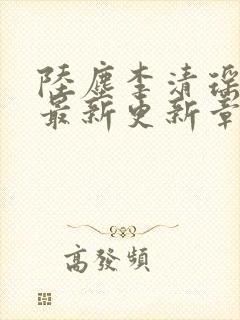 陸塵李清瑶
最新更新章
高發頻